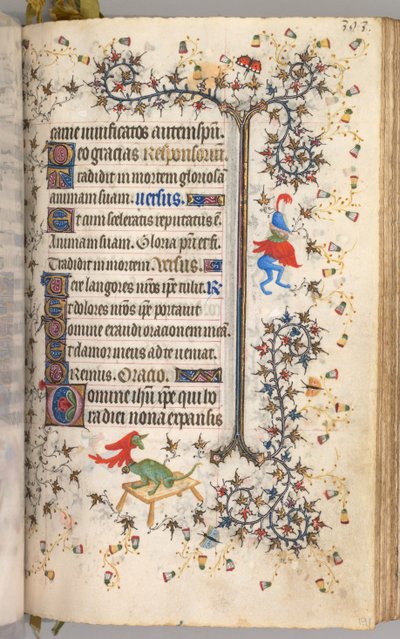 303.
carne viuificatos autem spu.
Deo gracias Responsorium.
Tradidit in mortem gloriosā
animam suam. Uersus.
Et cum sceleratis reputatus ē.
Animam suam. Gloria pri et fi.
Tradidit in mortem. Versus.
Uere langores nros ipe tulit. R.
Et dolores nros ipe portauit
Domine exaudi orationem meā.
Et clamor meus ad te ueniat.
Oremus. Oracio.
Domine ihu xpe qui ho
ra diei nona expansis